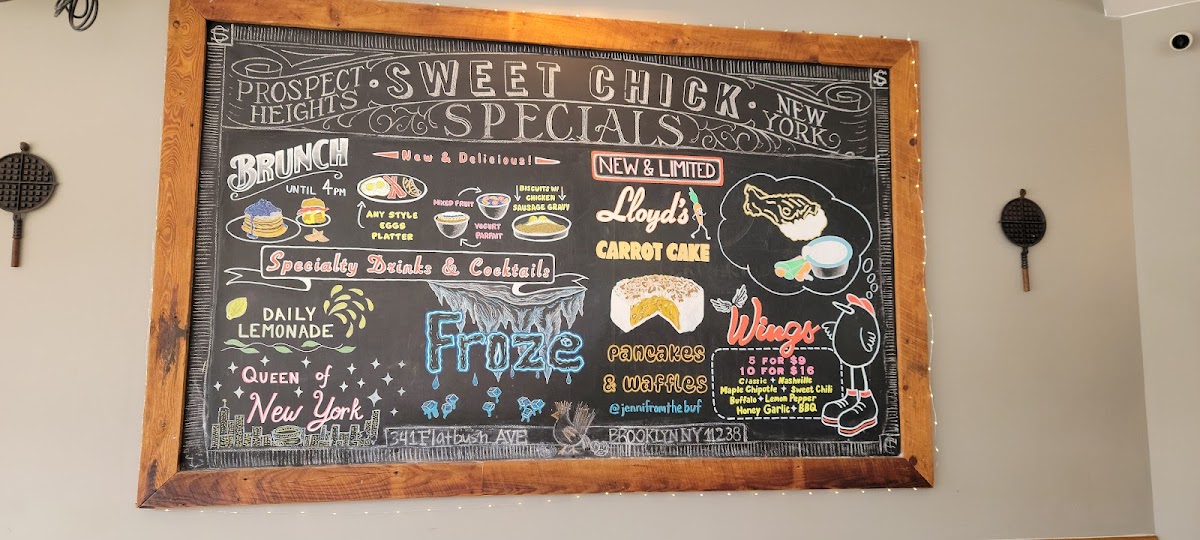 PROSPECT HEIGHTS
· SWEET CHICK ·
SPECIALS
NEW YORK
BRUNCH
UNTIL 4PM
New & Delicious!
ANY STYLE
EGGS
PLATTER
MIXED FRUIT
YOGURT
PARFAIT
BISCUITS W/
CHICKEN
SAUSAGE GRAVY
Specialty Drinks & Cocktails
DAILY
LEMONADE
QUEEN of
New York
Froze
NEW & LIMITED
Lloyd's
CARROT CAKE
PANCAKES
& WAFFLES
@jennifromthebuf
Wings
5 FOR $9
10 FOR $16
Classic + Nashville
Maple Chipotle + Sweet Chili
Buffalo + Lemon Pepper
Honey Garlic + BBQ
341 Flatbush AVE
BROOKLYN NY 11238